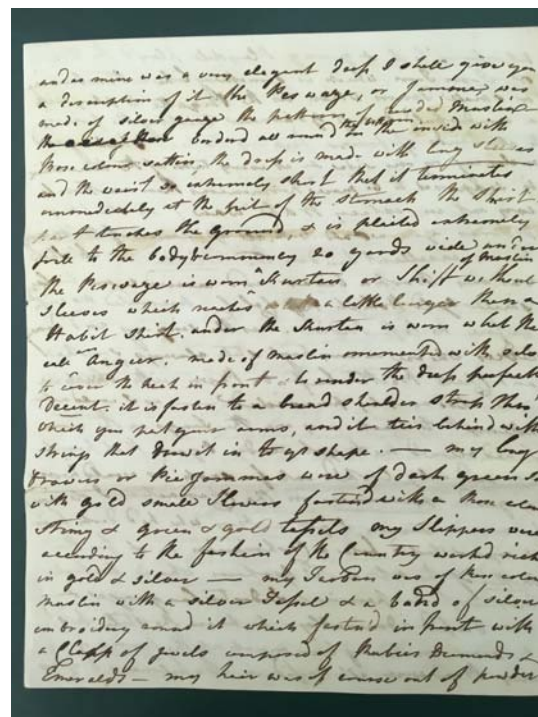 and as mine was a very elegant dress I shall give you
a description of it the Peswage, or Jammone, was
made of silver gauze the pattern of sanded Muslin
the borderd all round the bottom on the inside with
Rose colour sattin the dress is made with long sleeves
and the waist so extremely short that it terminates
immediately at the pit of the stomach the Skirt
just touches the ground, & is plaited extremely
full to the body being 20 yards wide under
the Peswage is worn a Kurtan or Shift of Muslin without
sleeves which reaches a little longer than a
Habit Shirt. under the Kurtan is worn what the
call an Angier. made of muslin ornamented with silv
to cover the neck in front & to render the dress perfect
Decent. it is fasten to a broad shoulder strap thro'
which you put your arms, and it ties behind with
strings that draw it in to yr shape. — my long
Drawers or Pie Jammas were of dark green
with gold small flowers fastend with a Rose colou
string & green & gold tassels my slippers were
according to the fashion of the Country worked rich
in gold & silver — my Turban was of Rose colou
muslin with a silver Tassel & a band of silver
embroidery round it which fastend in front with
a Clasp of jewels composed of Rubies Diamonds &
Emeralds — my hair was of course out of powder